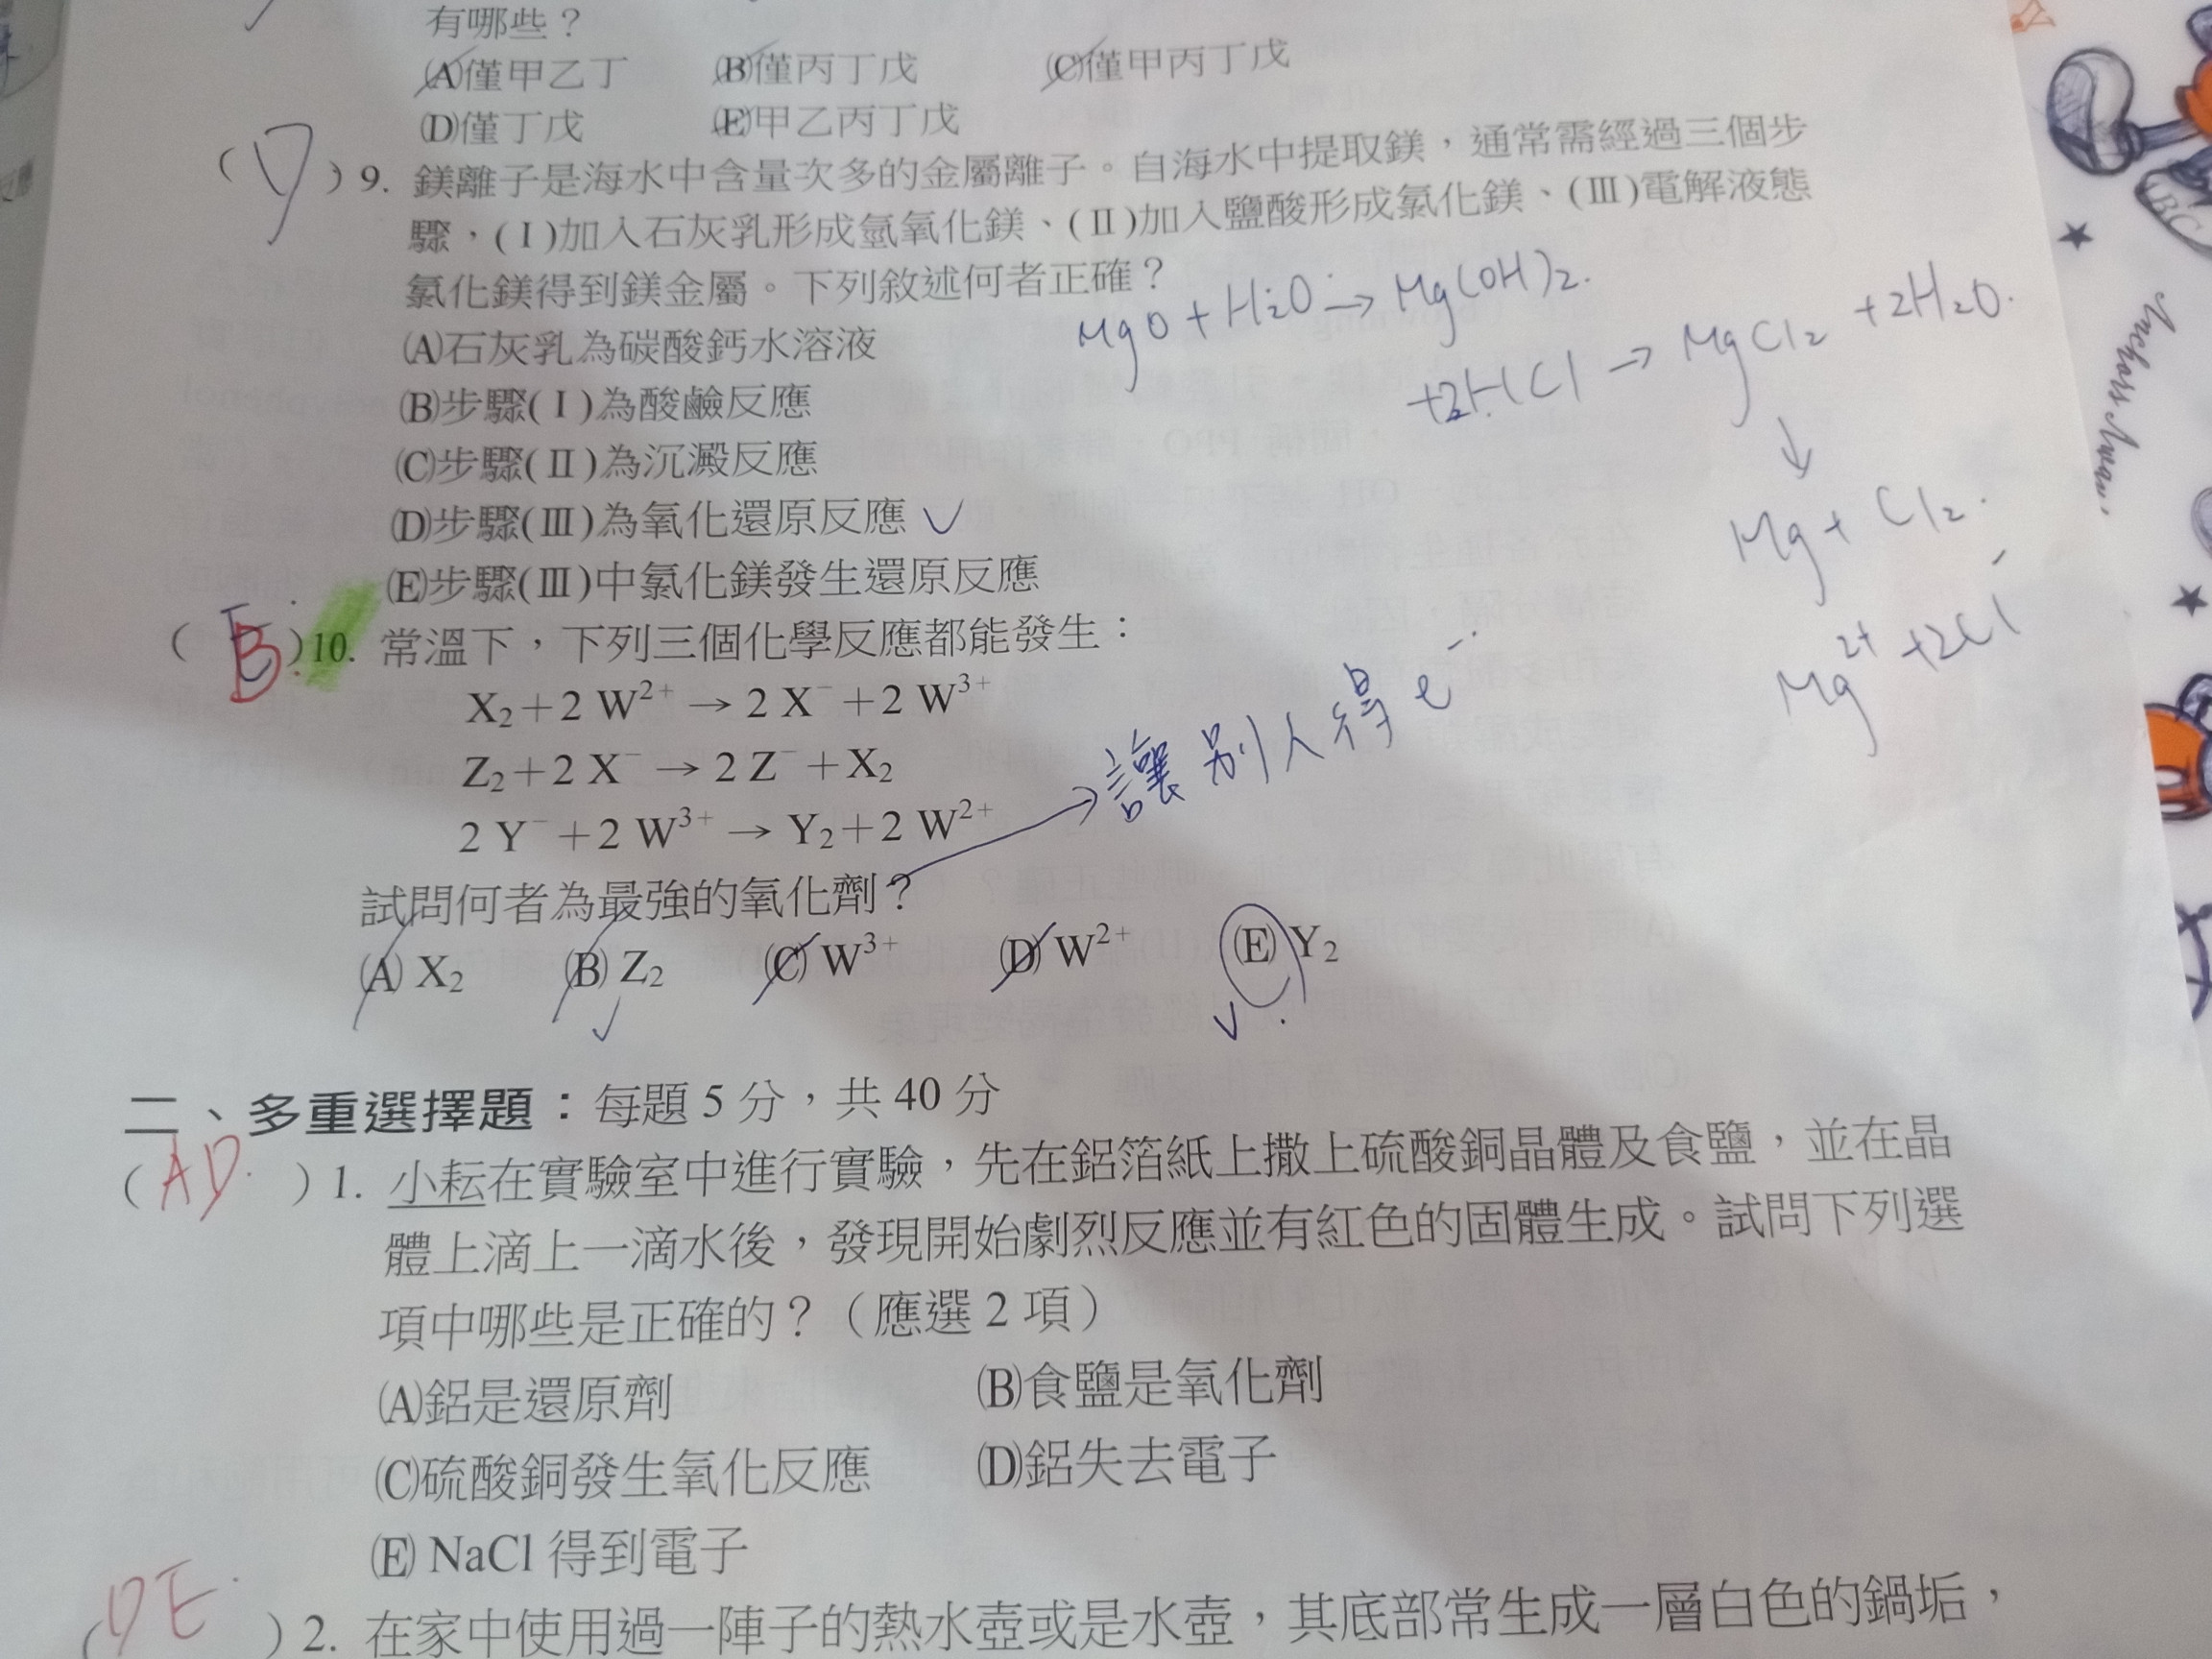 有哪些？
(A)僅甲乙丁 (B)僅丙丁戊 (C)僅甲丙丁戊
(D)僅丁戊 (E)甲乙丙丁戊
( D )9. 鎂離子是海水中含量次多的金屬離子。自海水中提取鎂，通常需經過三個步
驟，(Ⅰ)加入石灰乳形成氫氧化鎂、(Ⅱ)加入鹽酸形成氯化鎂、(Ⅲ)電解液態
氯化鎂得到鎂金屬。下列敘述何者正確？
MgO + H₂O → Mg(OH)₂.
(A)石灰乳為碳酸鈣水溶液
+2HCl → MgCl₂ + 2H₂O.
(B)步驟(Ⅰ)為酸鹼反應
↓
(C)步驟(Ⅱ)為沉澱反應
Mg + Cl₂.
(D)步驟(Ⅲ)為氧化還原反應 ✓
(E)步驟(Ⅲ)中氯化鎂發生還原反應
Mg²⁺ + 2Cl⁻
( B )10. 常溫下，下列三個化學反應都能發生：
X₂+2 W²⁺ → 2 X⁻+2 W³⁺
Z₂+2 X⁻ → 2 Z⁻+X₂
2 Y⁻+2 W³⁺ → Y₂+2 W²⁺
→ 讓別人得 e⁻.
試問何者為最強的氧化劑？
(A) X₂ (B) Z₂ (C) W³⁺ (D) W²⁺ (E) Y₂
二、多重選擇題：每題 5 分，共 40 分
( AD )1. 小耘在實驗室中進行實驗，先在鋁箔紙上撒上硫酸銅晶體及食鹽，並在晶
體上滴上一滴水後，發現開始劇烈反應並有紅色的固體生成。試問下列選
項中哪些是正確的？（應選 2 項）
(A)鋁是還原劑 (B)食鹽是氧化劑
(C)硫酸銅發生氧化反應 (D)鋁失去電子
(E) NaCl 得到電子
( DE )2. 在家中使用過一陣子的熱水壺或是水壺，其底部常生成一層白色的鍋垢，